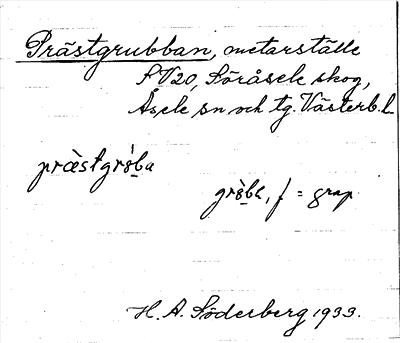 Prästgrubban, metarställe
f. V20, Söråsele skog,
Åsele sn och tg. Västerb. l.
præ̀stgrò̤ba
grò̤ba, f = grop
H. A. Söderberg 1933.